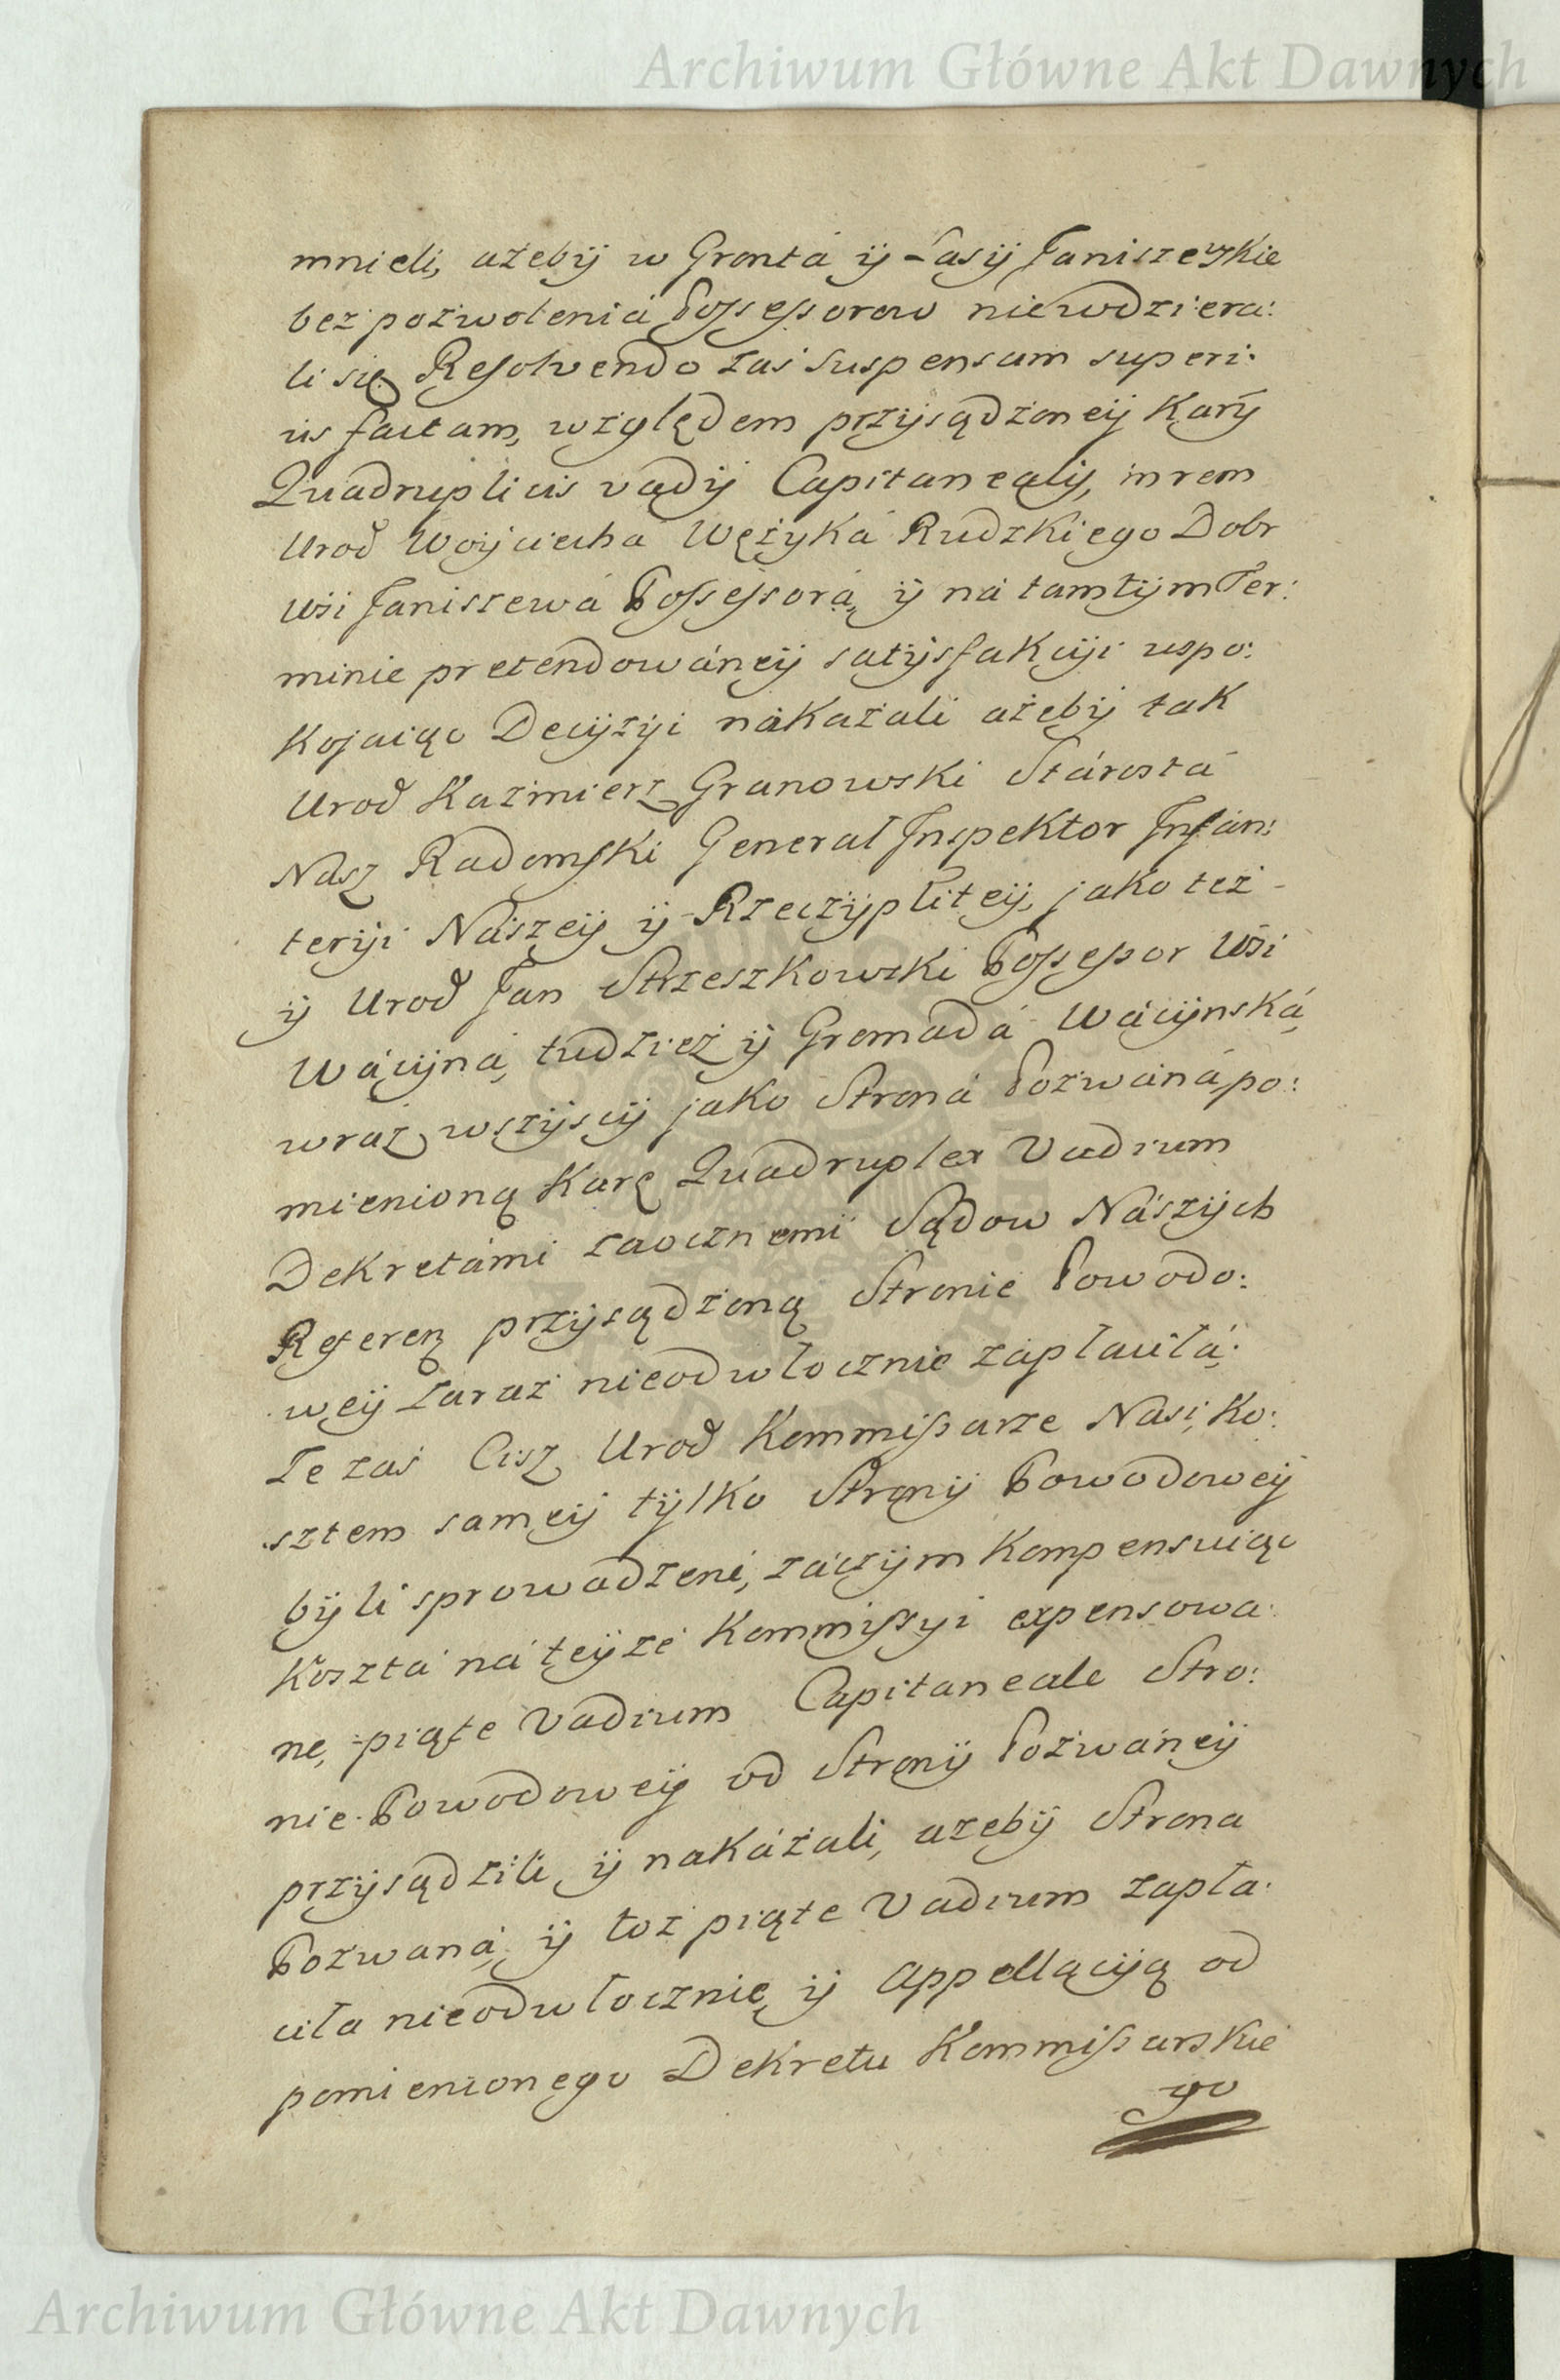 Archiwum Główne Akt Dawnych
mnieli, ażebÿ w Grontá ÿ Lasÿ Janiszewskie
bez pozwoleniá Possessorow niewdziera:
li się. Resolvendo zaś Suspensam superi:
us factam, względem przÿsądzoneÿ Karÿ
Quadruplicis vadij Capitanealis, in rem
Urod Woÿciecha Wężyká Rudzkiego Dobr
Wśi Janiszewá Possessorá, ÿ ná tamtÿm Ter:
minie pretendowáneÿ satÿsfakcÿi uspo:
kojaiąc Decÿzÿi nákazali ażebÿ tak
Urod Kazimierz Granowski Stárostá
Nász Radomski Generał Inspektor Infán:
terÿi Nászeÿ ÿ Rzeczÿpliteÿ, jako też
ÿ Urod Jan Strzeszkowski Possessor Wśi
Wácÿná, tudzież ÿ Gromadá Wácÿnská,
wraz wszÿscÿ jako Stroná Pozwáná, po:
mienioną Karę Quadruplex Vadium
Dekretámi zaocznemi Sądow Nászÿch
Referen przÿsądzoną Stronie Powodo:
weÿ zaraz nieodwłocznie zapłaciłá;
Że zaś Ciż Urod Kommissarze Nasi, Ko:
sztem sameÿ tÿlko Stronÿ Powodoweÿ
bÿli sprowadzeni, záczÿm kompensuiąc
Kosztá ná teÿże Kommissyi expensowa:
ne, piąte Vadium Capitaneale Stro:
nie Powodoweÿ od Stronÿ Pozwáneÿ
przÿsądzili, ÿ nakázali, ażebÿ Strona
Pozwaná, ÿ toż piąte Vadium zapła:
ciła nieodwłocznie, ÿ Appellácÿą od
pomienionego Dekretu Kommissarskie
go
Archiwum Główne Akt Dawnych